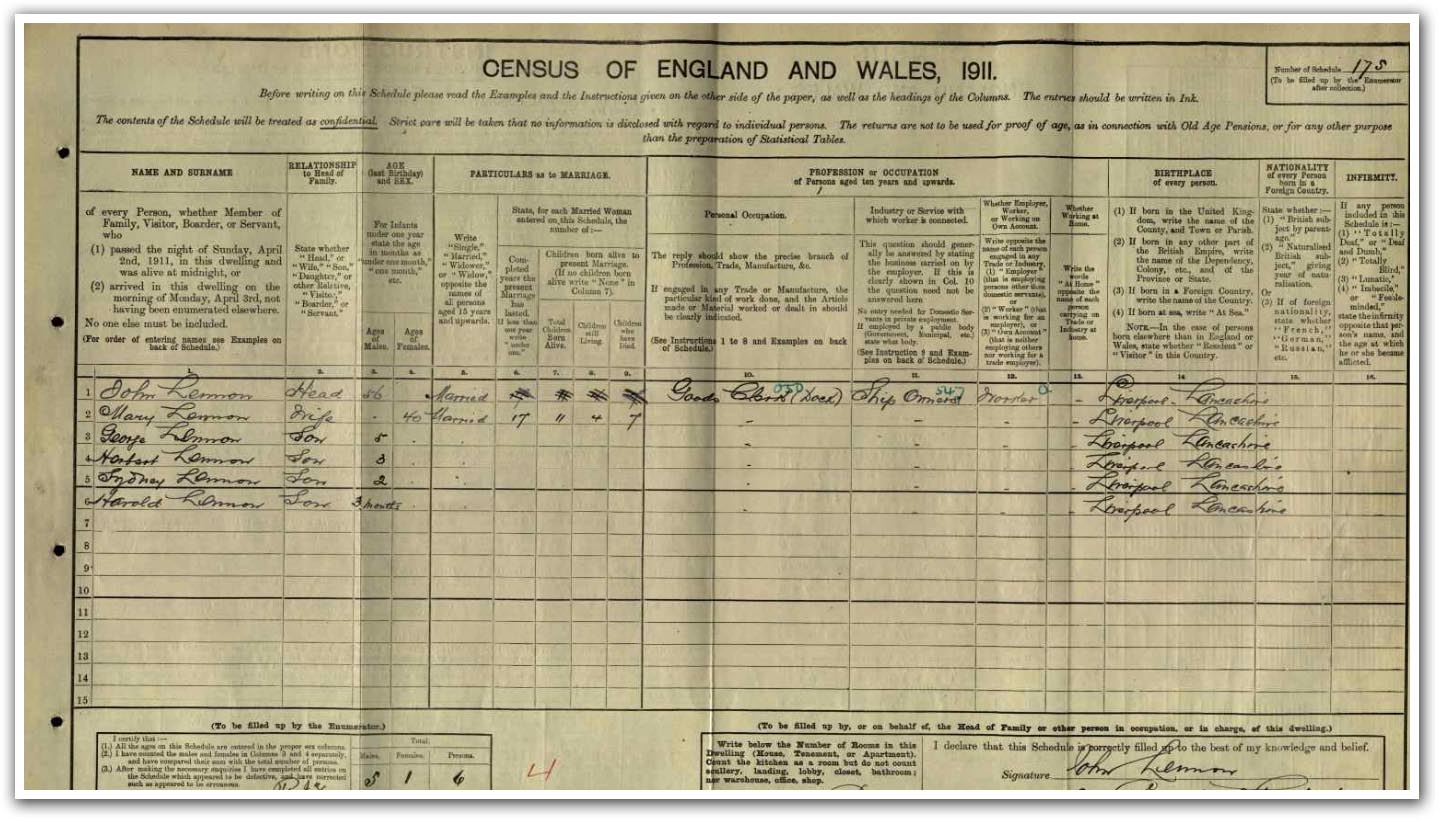 CENSUS OF ENGLAND AND WALES, 1911.
Number of Schedule 175
(To be filled up by the Enumerator
after collection.)
Before writing on this Schedule please read the Examples and the Instructions given on the other side of the paper, as well as the headings of the Columns. The entries should be written in Ink.
The contents of the Schedule will be treated as confidential. Strict care will be taken that no information is disclosed with regard to individual persons. The returns are not to be used for proof of age, as in connection with Old Age Pensions, or for any other purpose
than the preparation of Statistical Tables.
NAME AND SURNAME
of every Person, whether Member of
Family, Visitor, Boarder, or Servant,
who
(1) passed the night of Sunday, April
2nd, 1911, in this dwelling and
was alive at midnight, or
(2) arrived in this dwelling on the
morning of Monday, April 3rd, not
having been enumerated elsewhere.
No one else must be included.
(For order of entering names see Examples on
back of Schedule.)
RELATIONSHIP
to Head of
Family.
State whether
"Head," or
"Wife," "Son,"
"Daughter," or
other Relative,
"Visitor,"
"Boarder," or
"Servant."
AGE
(last Birthday)
and SEX.
For Infants
under one year
state the age
in months as
"under one month,"
"one month,"
etc.
Ages
of
Males.
Ages
of
Females.
PARTICULARS as to MARRIAGE.
Write
"Single,"
"Married,"
"Widower,"
or "Widow,"
opposite the
names of
all persons
aged 15 years
and upwards.
State, for each Married Woman
entered on this Schedule, the
number of:—
Com-
pleted
years the
present
Marriage
has
lasted.
If less than
one year
write
"under
one."
Children born alive to
present Marriage.
(If no children born
alive write "None" in
Column 7).
Total
Children
Born
Alive.
Children
still
Living.
Children
who
have
Died.
PROFESSION or OCCUPATION
of Persons aged ten years and upwards.
Personal Occupation.
The reply should show the precise branch of
Profession, Trade, Manufacture, &c.
If engaged in any Trade or Manufacture, the
particular kind of work done, and the Article
made or Material worked or dealt in should
be clearly indicated.
(See Instructions 1 to 8 and Examples on back
of Schedule.)
Industry or Service with
which worker is connected.
This question should gener-
ally be answered by stating
the business carried on by
the employer. If this is
clearly shown in Col. 10
the question need not be
answered here
No entry needed for Domestic Ser-
vants in private employment.
If employed by a public body
(Government, Municipal, etc.)
state what body.
(See Instruction 9 and Exam-
ples on back of Schedule.)
Whether Employer,
Worker,
or Working on
Own Account.
Write opposite the
name of each person
engaged in any
Trade or Industry,
(1) "Employer"
(that is employing
persons other than
domestic servants),
or
(2) "Worker" (that
is working for an
employer), or
(3) "Own Account"
(that is neither
employing others
nor working for a
trade employer).
Whether
Working at
Home.
Write the
words
"At Home"
opposite the
name of each
person
carrying on
Trade or
Industry at
home.
BIRTHPLACE
of every person.
(1) If born in the United King-
dom, write the name of the
County, and Town or Parish.
(2) If born in any other part of
the British Empire, write
the name of the Dependency,
Colony, etc., and of the
Province or State.
(3) If born in a Foreign Country,
write the name of the Country.
(4) If born at sea, write "At Sea."
NOTE.—In the case of persons
born elsewhere than in England or
Wales, state whether "Resident" or
"Visitor" in this Country.
NATIONALITY
of every Person
born in a
Foreign Country.
State whether:—
(1) "British sub-
ject by parent-
age."
(2) "Naturalised
British sub-
ject," giving
year of natu-
ralisation.
Or
(3) If of foreign
nationality,
state whether
"French,"
"German,"
"Russian,"
etc.
INFIRMITY.
If any person
included in this
Schedule is:—
(1) "Totally
Deaf," or "Deaf
and Dumb,"
(2) "Totally
Blind,"
(3) "Lunatic,"
(4) "Imbecile,"
or "Feeble-
minded,"
state the infirmity
opposite that per-
son's name, and
the age at which
he or she became
afflicted.
2. 3. 4. 5. 6. 7. 8. 9. 10. 11. 12. 13. 14. 15. 16.
1 John Lennon Head 56 Married Goods Clerk (Dock) 050 Ship Owners 547 Worker 0 - Liverpool - Lancashire
2 Mary Lennon Wife - 40 Married 17 11 4 7 - - - - Liverpool Lancashire
3 George Lennon Son 5 - - - - Liverpool Lancashire
4 Herbert Lennon Son 3 - - - - Liverpool Lancashire
5 Sydney Lennon Son 2 - - - - Liverpool Lancashire
6 Harold Lennon Son 3 months - - - - Liverpool Lancashire
7
8
9
10
11
12
13
14
15
(To be filled up by the Enumerator.)
I certify that:—
(1.) All the ages on this Schedule are entered in the proper sex columns.
(2.) I have counted the males and females in Columns 3 and 4 separately,
and have compared their sum with the total number of persons.
(3.) After making the necessary enquiries I have completed all entries on
the Schedule which appeared to be defective, and have corrected
such as appeared to be erroneous.
Total.
Males. Females. Persons.
5 1 6
4
(To be filled up by, or on behalf of, the Head of Family or other person in occupation, or in charge, of this dwelling.)
Write below the Number of Rooms in this
Dwelling (House, Tenement, or Apartment).
Count the kitchen as a room but do not count
scullery, landing, lobby, closet, bathroom;
nor warehouse, office, shop.
I declare that this Schedule is correctly filled up to the best of my knowledge and belief.
Signature John Lennon